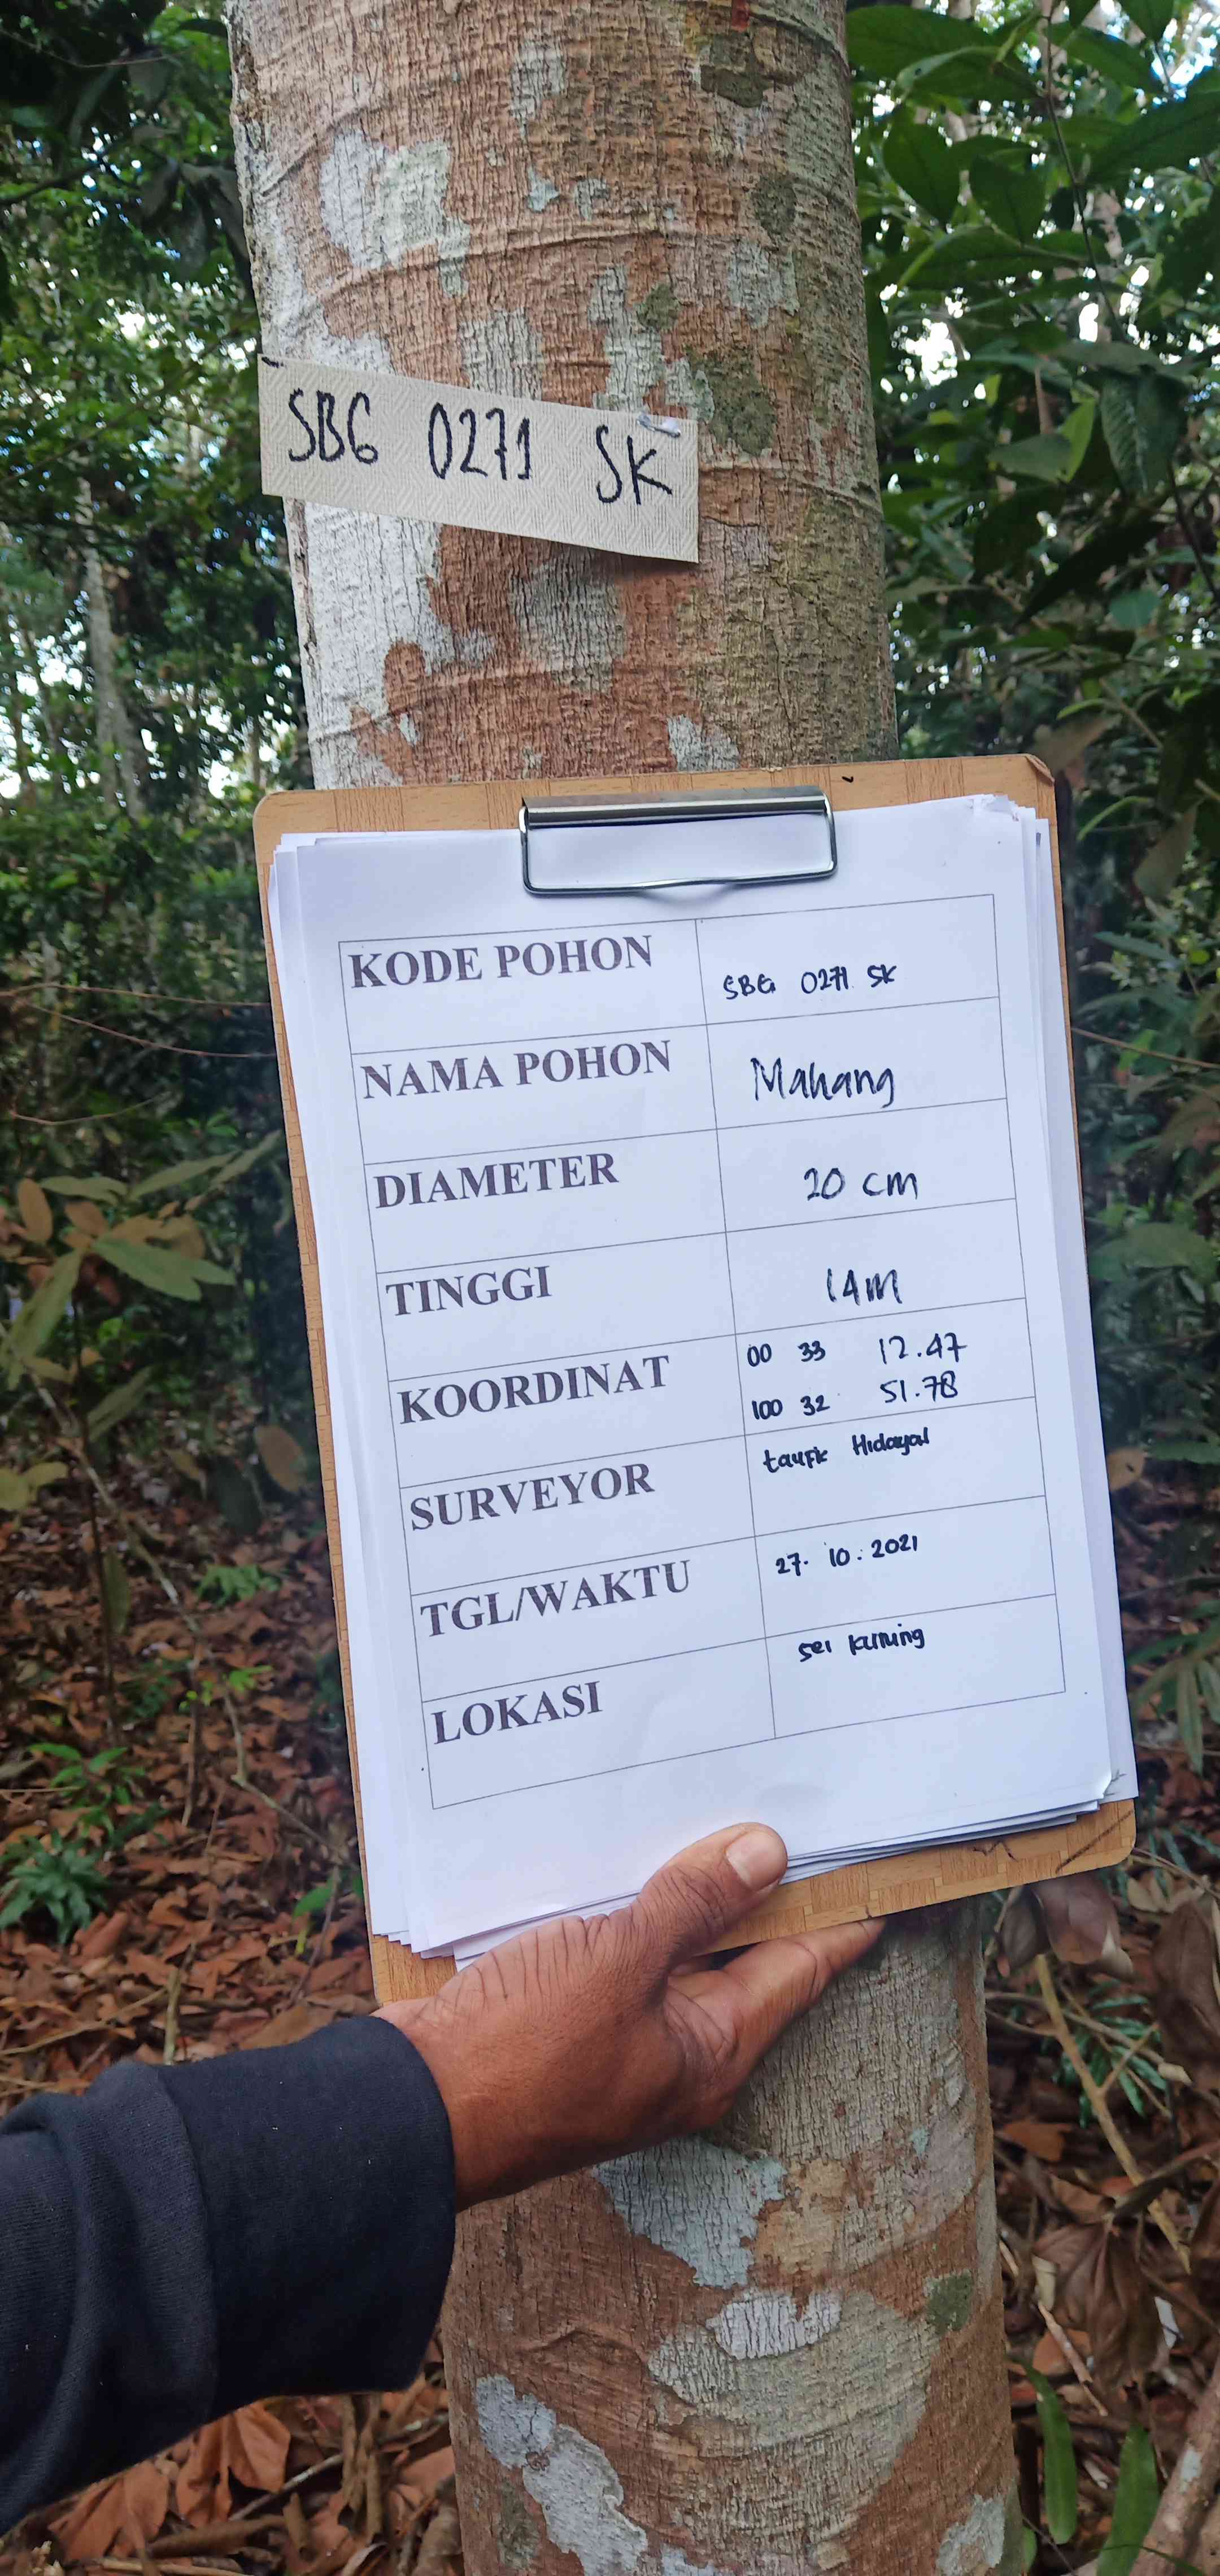 SBG 0271 SK
KODE POHON SBG 0271 SK
NAMA POHON Mahang
DIAMETER 20 cm
TINGGI 14m
KOORDINAT 00 33 12.47
100 32 51.78
SURVEYOR taufik Hidayat
TGL/WAKTU 27. 10. 2021
LOKASI sei kuning